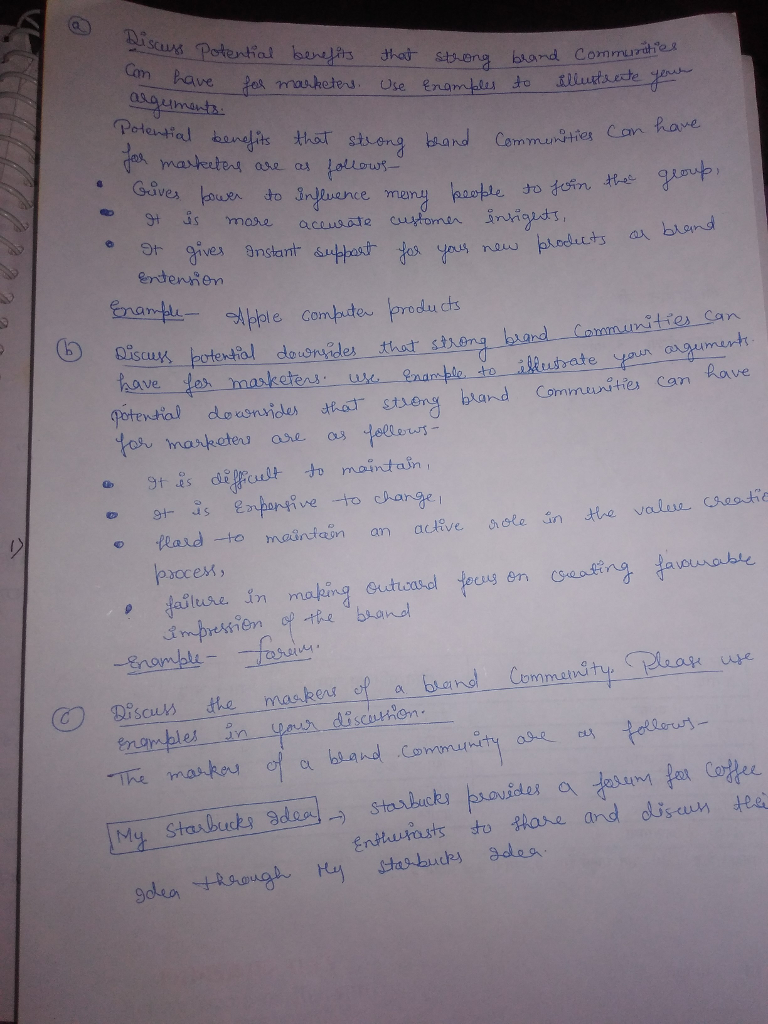 (a) Discuss Potential benefits that strong brand Communities
Can have for marketers. Use Examples to illustrate your
arguments.
Potential benefits that strong brand Communities Can have
for marketers are as follows-
• Gives power to influence many people to join the group,
• It is more accurate customer insights,
• It gives instant support for your new products or brand
Extension
Example- Apple computer products
(b) Discuss potential downsides that strong brand Communities can
have for marketers. Use Example to illustrate your arguments.
potential downsides that strong brand Communities can have
for marketers are as follows-
• It is difficult to maintain,
• It is Expensive to change,
1) • Hard to maintain an active role in the value creatio
process,
• failure in making outward focus on creating favourable
impression of the brand
-Example- forum.
(c) Discuss the markers of a brand Community. Please use
Examples in your discussion.
The markers of a brand community are as follows-
My Starbucks Idea → Starbucks provides a forum for Coffee
Enthusiasts to share and discuss thei
Idea through My Starbucks Idea.